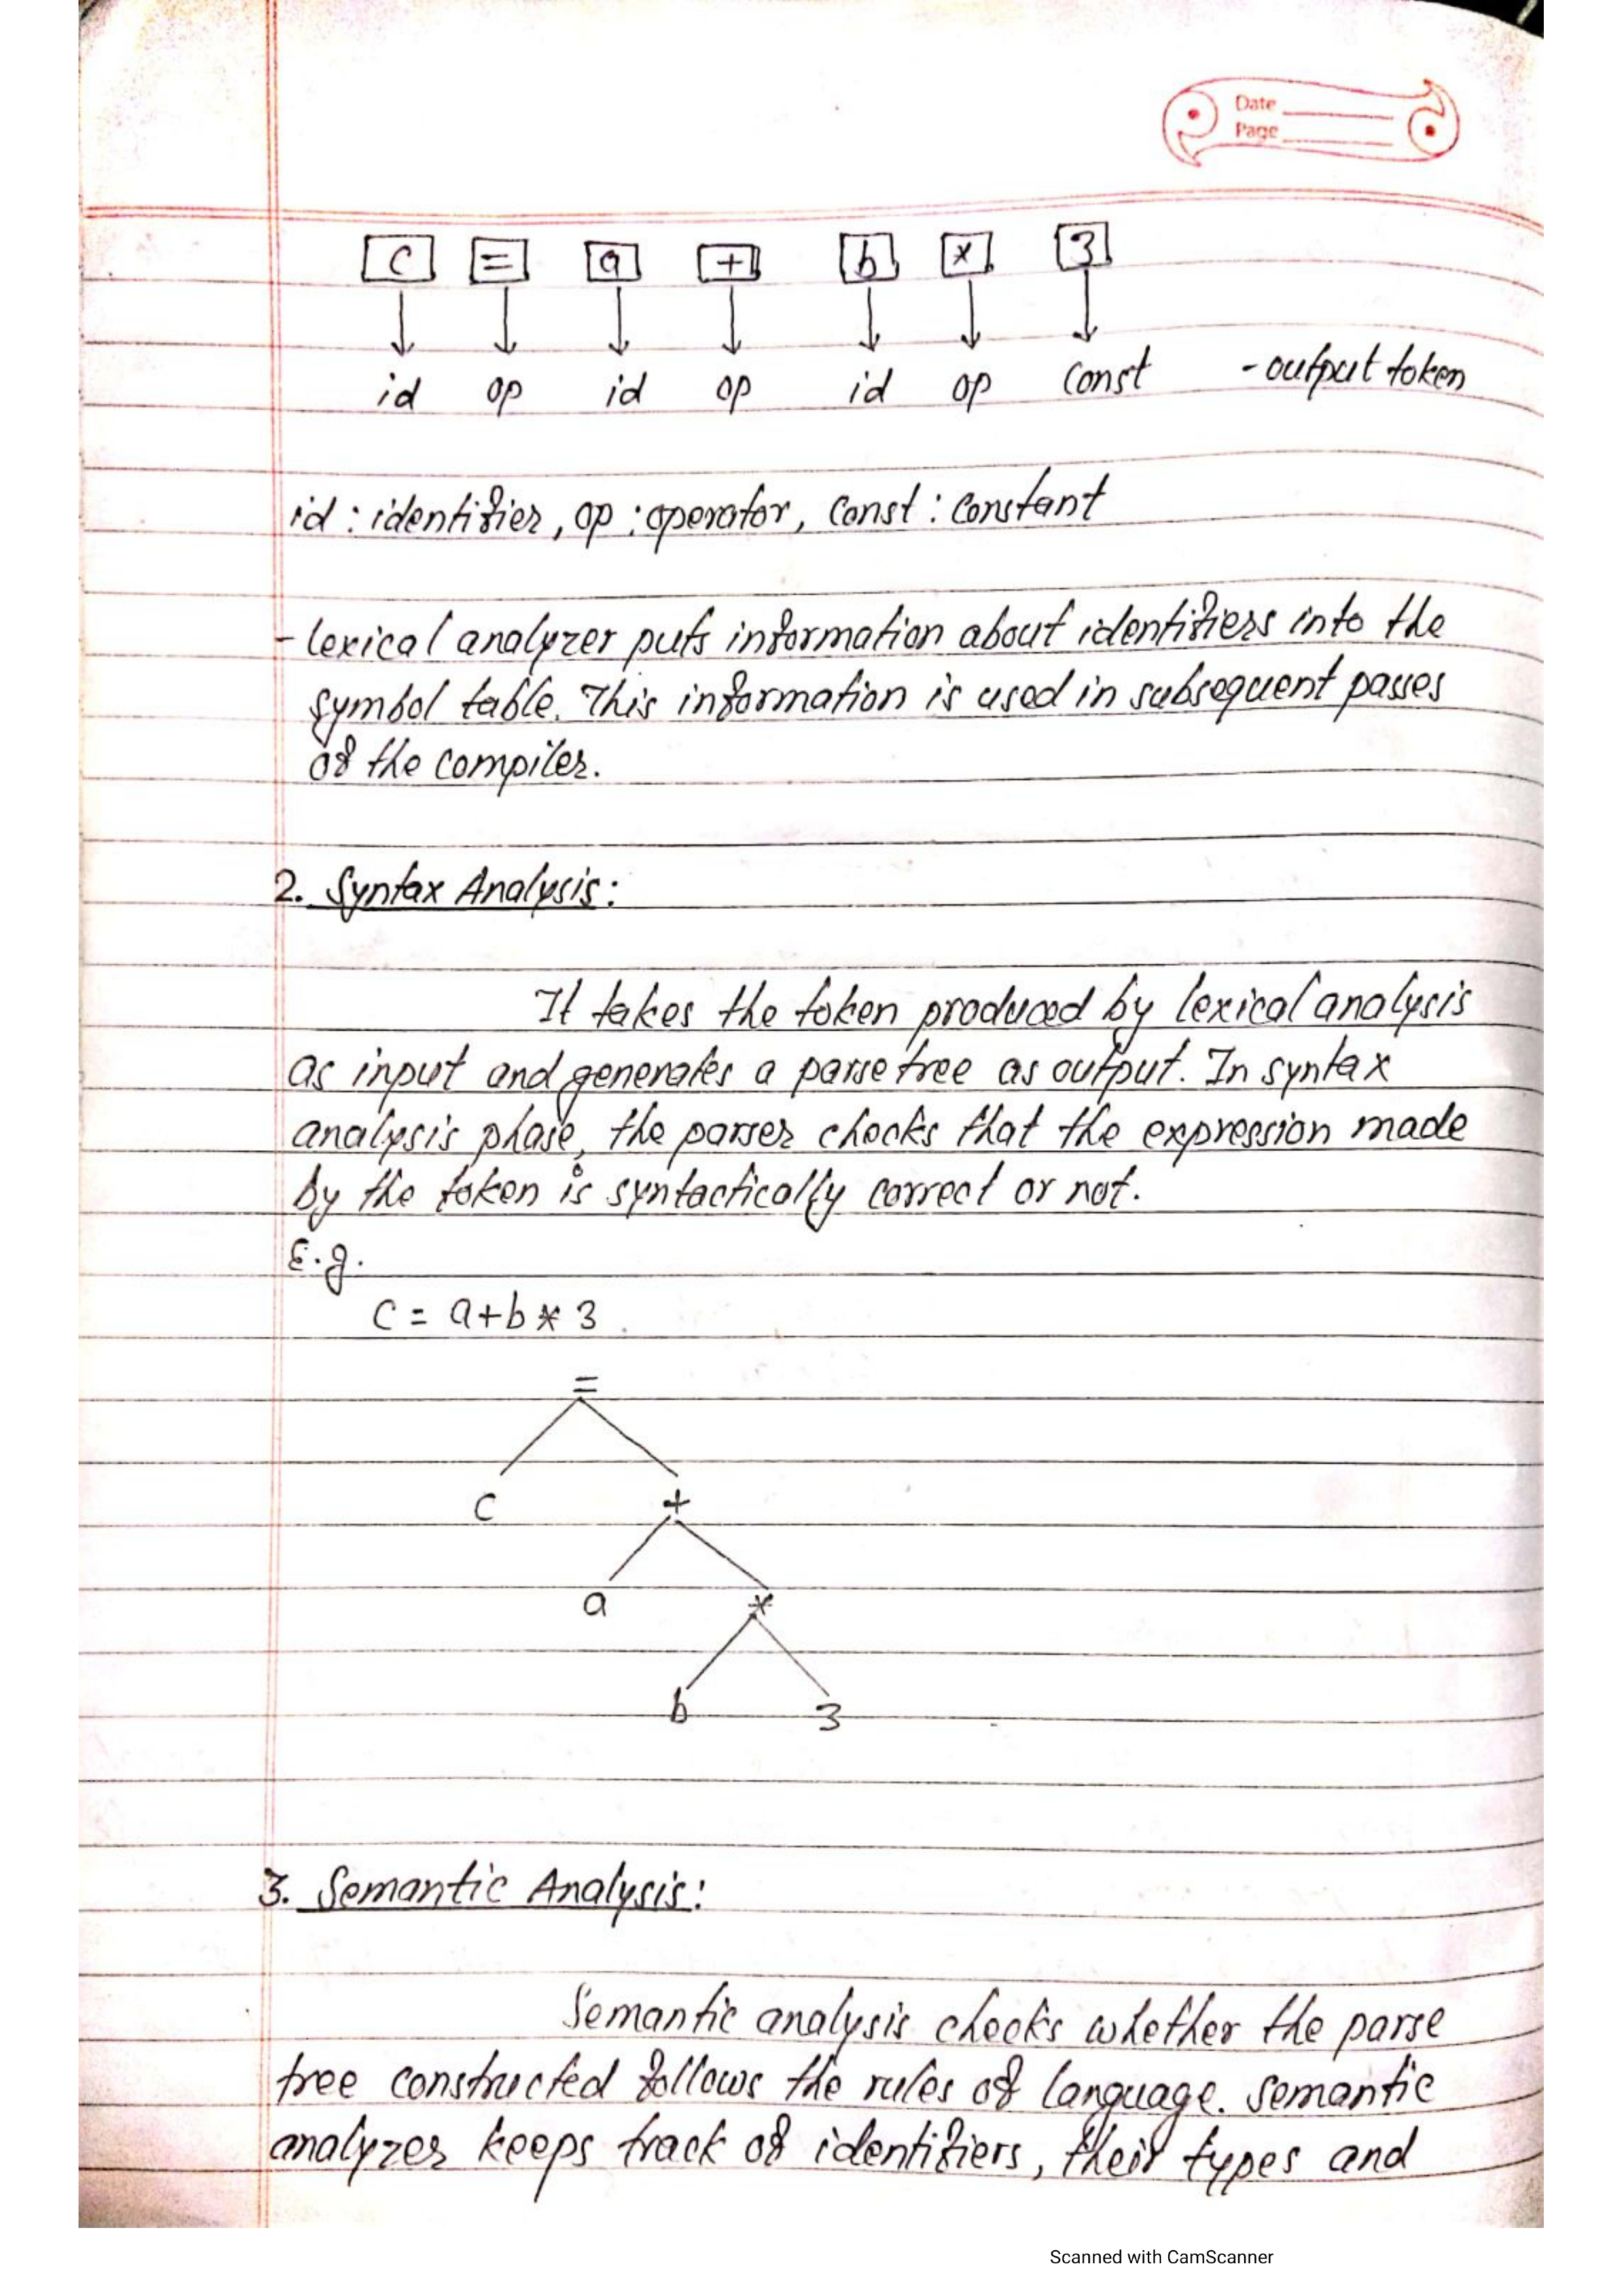 Date
Page
c = a + b * 3
id op id op id op const - output token
id : identifier, op : operator, const : constant
- lexical analyzer puts information about identifiers into the
symbol table. This information is used in subsequent passes
of the compiler.
2. Syntax Analysis:
It takes the token produced by lexical analysis
as input and generates a parse tree as output. In syntax
analysis phase, the parser checks that the expression made
by the token is syntactically correct or not.
E.g.
c = a+b * 3
=
c +
a *
b 3
3. Semantic Analysis:
Semantic analysis checks whether the parse
tree constructed follows the rules of language. Semantic
analyzer keeps track of identifiers, their types and
Scanned with CamScanner